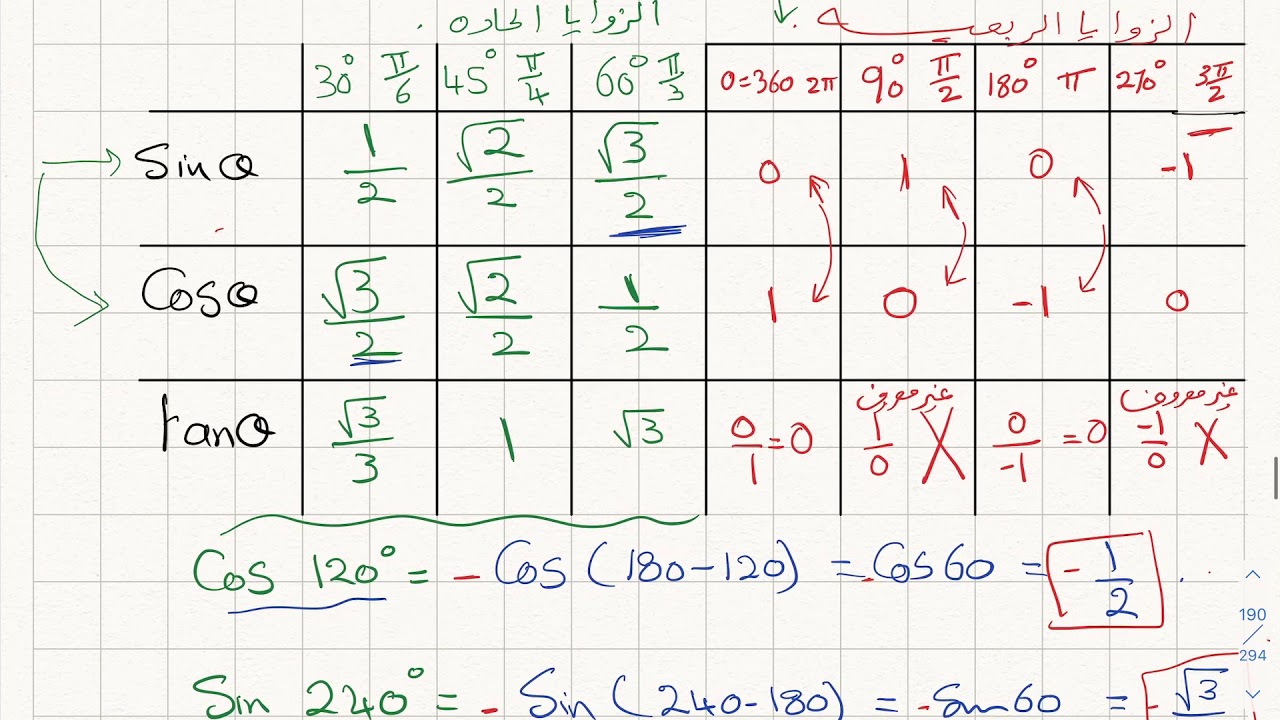 الزوايا الحاده . الزوايا الربعيه
30° π/6 45° π/4 60° π/3 0=360 2π 90° π/2 180° π 270° 3π/2
Sinθ 1/2 √2/2 √3/2 0 1 0 -1
Cosθ √3/2 √2/2 1/2 1 0 -1 0
tanθ √3/3 1 √3 0/1=0 غير معرف 1/0 X 0/-1=0 غير معروف -1/0 X
Cos 120° = - Cos (180-120) = -Cos60 = -1/2 .
190/294
Sin 240° = - Sin (240-180) = -Sin60 = -√3